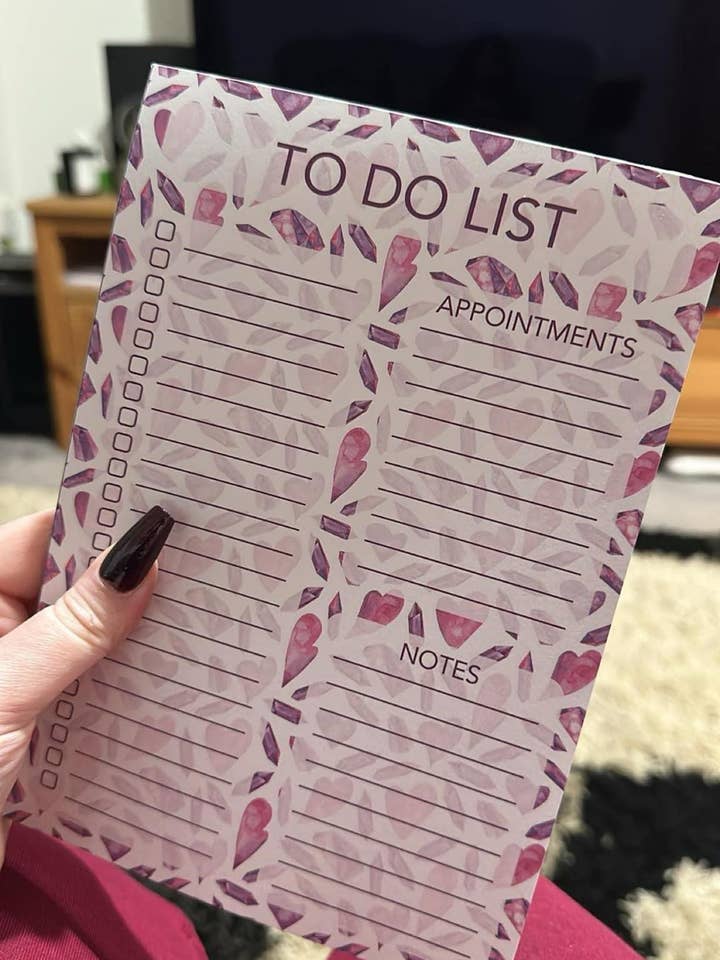 TO DO LIST
APPOINTMENTS
NOTES